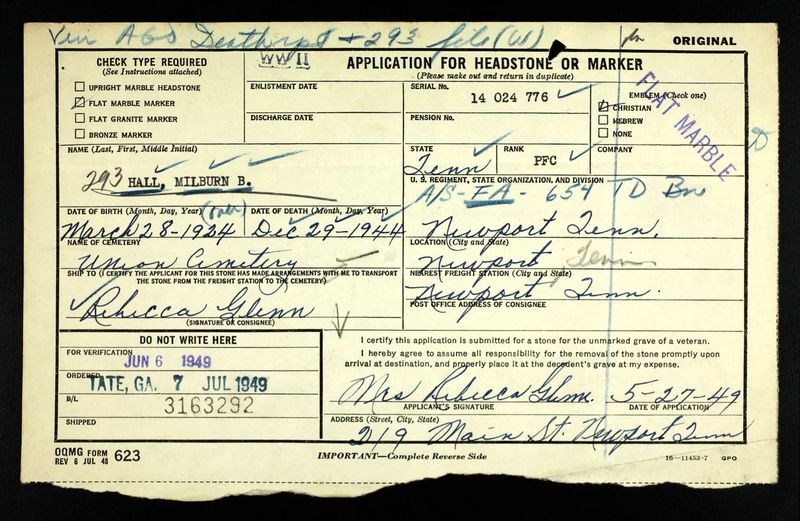 Veri AGO Deathrpt + 293 file (W)
ORIGINAL
CHECK TYPE REQUIRED
(See Instructions attached)
UPRIGHT MARBLE HEADSTONE
FLAT MARBLE MARKER
FLAT GRANITE MARKER
BRONZE MARKER
WW II
APPLICATION FOR HEADSTONE OR MARKER
(Please make out and return in duplicate)
ENLISTMENT DATE
DISCHARGE DATE
SERIAL No.
14 024 776
PENSION No.
EMBLEM (Check one)
CHRISTIAN
HEBREW
NONE
FLAT MARBLE
NAME (Last, First, Middle Initial)
293 HALL, MILBURN B.
STATE
Tenn
RANK
PFC
COMPANY
U. S. REGIMENT, STATE ORGANIZATION, AND DIVISION
A/S - FA - 654 TD Bn
DATE OF BIRTH (Month, Day, Year)
(over)
DATE OF DEATH (Month, Day, Year)
March 28-1924
Dec 29-1944
Newport Tenn.
NAME OF CEMETERY
Union Cemetery
LOCATION (City and State)
Newport Tenn
SHIP TO (I CERTIFY THE APPLICANT FOR THIS STONE HAS MADE ARRANGEMENTS WITH ME TO TRANSPORT
THE STONE FROM THE FREIGHT STATION TO THE CEMETERY)
NEAREST FREIGHT STATION (City and State)
Newport Tenn.
Rebecca Glenn
(SIGNATURE OR CONSIGNEE)
POST OFFICE ADDRESS OF CONSIGNEE
DO NOT WRITE HERE
FOR VERIFICATION
JUN 6 1949
ORDERED
TATE, GA. 7 JUL 1949
B/L
3163292
SHIPPED
I certify this application is submitted for a stone for the unmarked grave of a veteran.
I hereby agree to assume all responsibility for the removal of the stone promptly upon
arrival at destination, and properly place it at the decedent's grave at my expense.
Mrs Rebecca Glenn. 5-27-49
APPLICANT'S SIGNATURE
DATE OF APPLICATION
ADDRESS (Street, City, State)
219 Main St. Newport Tenn
OQMG FORM
REV 6 JUL 48
623
IMPORTANT—Complete Reverse Side
16—11453-7 GPO